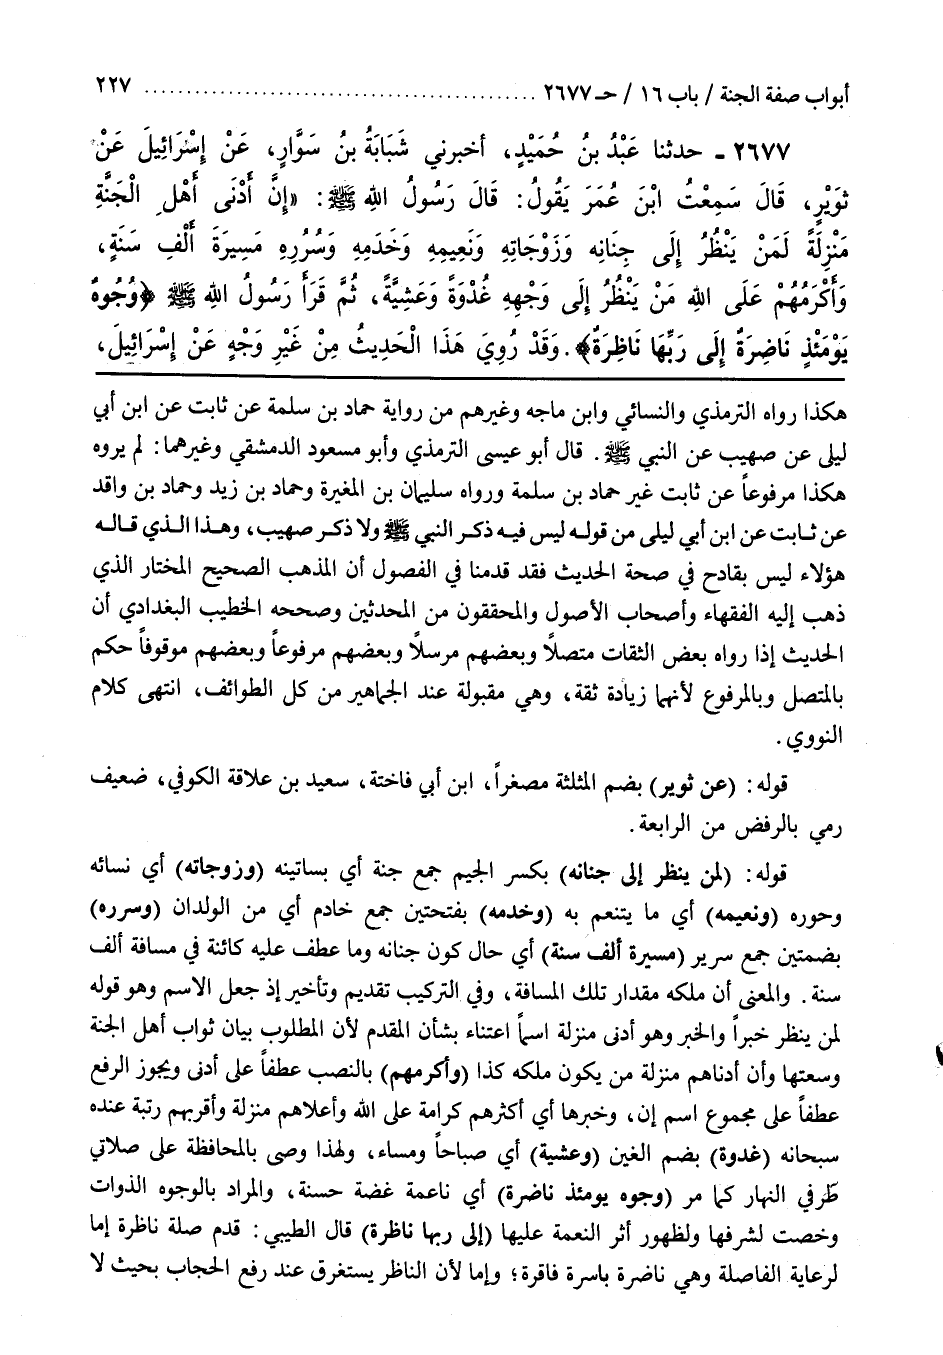 أبواب صفة الجنة / باب ١٦ / حـ ٢٦٧٧ ................................................ ٢٢٧
٢٦٧٧ ـ حدثنا عَبْدُ بنُ حُمَيْدٍ، أخبرني شَبَابَةُ بنُ سَوَّارٍ، عَنْ إِسْرَائِيلَ عَنْ
ثوَيْرٍ، قَالَ سَمِعْتُ ابْنَ عُمَرَ يَقُولُ: قَالَ رَسُولُ اللهِ ﷺ: «إِنَّ أَدْنَى أَهْلِ الْجَنَّةِ
مَنْزِلَةً لَمَنْ يَنْظُرُ إِلَى جِنَانِهِ وَزَوْجَاتِهِ وَنَعِيمِهِ وَخَدَمِهِ وَسُرُرِهِ مَسِيرَةَ أَلْفِ سَنَةٍ،
وَأَكْرَمُهُمْ عَلَى اللهِ مَنْ يَنْظُرُ إِلَى وَجْهِهِ غُدْوَةً وَعَشِيَّةً، ثُمَّ قَرَأَ رَسُولُ اللهِ ﷺ ﴿وُجُوهٌ
يَوْمَئِذٍ نَاضِرَةٌ إِلَى رَبِّهَا نَاظِرَةٌ﴾. وَقَدْ رُوِيَ هَذَا الْحَدِيثُ مِنْ غَيْرِ وَجْهٍ عَنْ إِسْرَائِيلَ،
هكذا رواه الترمذي والنسائي وابن ماجه وغيرهم من رواية حماد بن سلمة عن ثابت عن ابن أبي
ليلى عن صهيب عن النبي ﷺ. قال أبو عيسى الترمذي وأبو مسعود الدمشقي وغيرهما: لم يروه
هكذا مرفوعاً عن ثابت غير حماد بن سلمة ورواه سليمان بن المغيرة وحماد بن زيد وحماد بن واقد
عن ثابت عن ابن أبي ليلى من قوله ليس فيه ذكر النبي ﷺ ولا ذكر صهيب، وهذا الذي قاله
هؤلاء ليس بقادح في صحة الحديث فقد قدمنا في الفصول أن المذهب الصحيح المختار الذي
ذهب إليه الفقهاء وأصحاب الأصول والمحققون من المحدثين وصححه الخطيب البغدادي أن
الحديث إذا رواه بعض الثقات متصلاً وبعضهم مرسلاً وبعضهم مرفوعاً وبعضهم موقوفاً حكم
بالمتصل وبالمرفوع لأنهما زيادة ثقة، وهي مقبولة عند الجماهير من كل الطوائف، انتهى كلام
النووي.
قوله: (عن ثوير) بضم المثلثة مصغراً، ابن أبي فاختة، سعيد بن علاقة الكوفي، ضعيف
رمي بالرفض من الرابعة.
قوله: (لمن ينظر إلى جنانه) بكسر الجيم جمع جنة أي بساتينه (وزوجاته) أي نسائه
وحوره (ونعيمه) أي ما يتنعم به (وخدمه) بفتحتين جمع خادم أي من الولدان (وسرره)
بضمتين جمع سرير (مسيرة ألف سنة) أي حال كون جنانه وما عطف عليه كائنة في مسافة ألف
سنة. والمعنى أن ملكه مقدار تلك المسافة، وفي التركيب تقديم وتأخير إذ جعل الاسم وهو قوله
لمن ينظر خبراً والخبر وهو أدنى منزلة اسماً اعتناء بشأن المقدم لأن المطلوب بيان ثواب أهل الجنة
وسعتها وأن أدناهم منزلة من يكون ملكه كذا (وأكرمهم) بالنصب عطفاً على أدنى ويجوز الرفع
عطفاً على مجموع اسم إن، وخبرها أي أكثرهم كرامة على الله وأعلاهم منزلة وأقربهم رتبة عنده
سبحانه (غدوة) بضم الغين (وعشية) أي صباحاً ومساء، ولهذا وصى بالمحافظة على صلاتي
طرفي النهار كما مر (وجوه يومئذ ناضرة) أي ناعمة غضة حسنة، والمراد بالوجوه الذوات
وخصت لشرفها ولظهور أثر النعمة عليها (إلى ربها ناظرة) قال الطيبي: قدم صلة ناظرة إما
لرعاية الفاصلة وهي ناضرة باسرة فاقرة؛ وإما لأن الناظر يستغرق عند رفع الحجاب بحيث لا